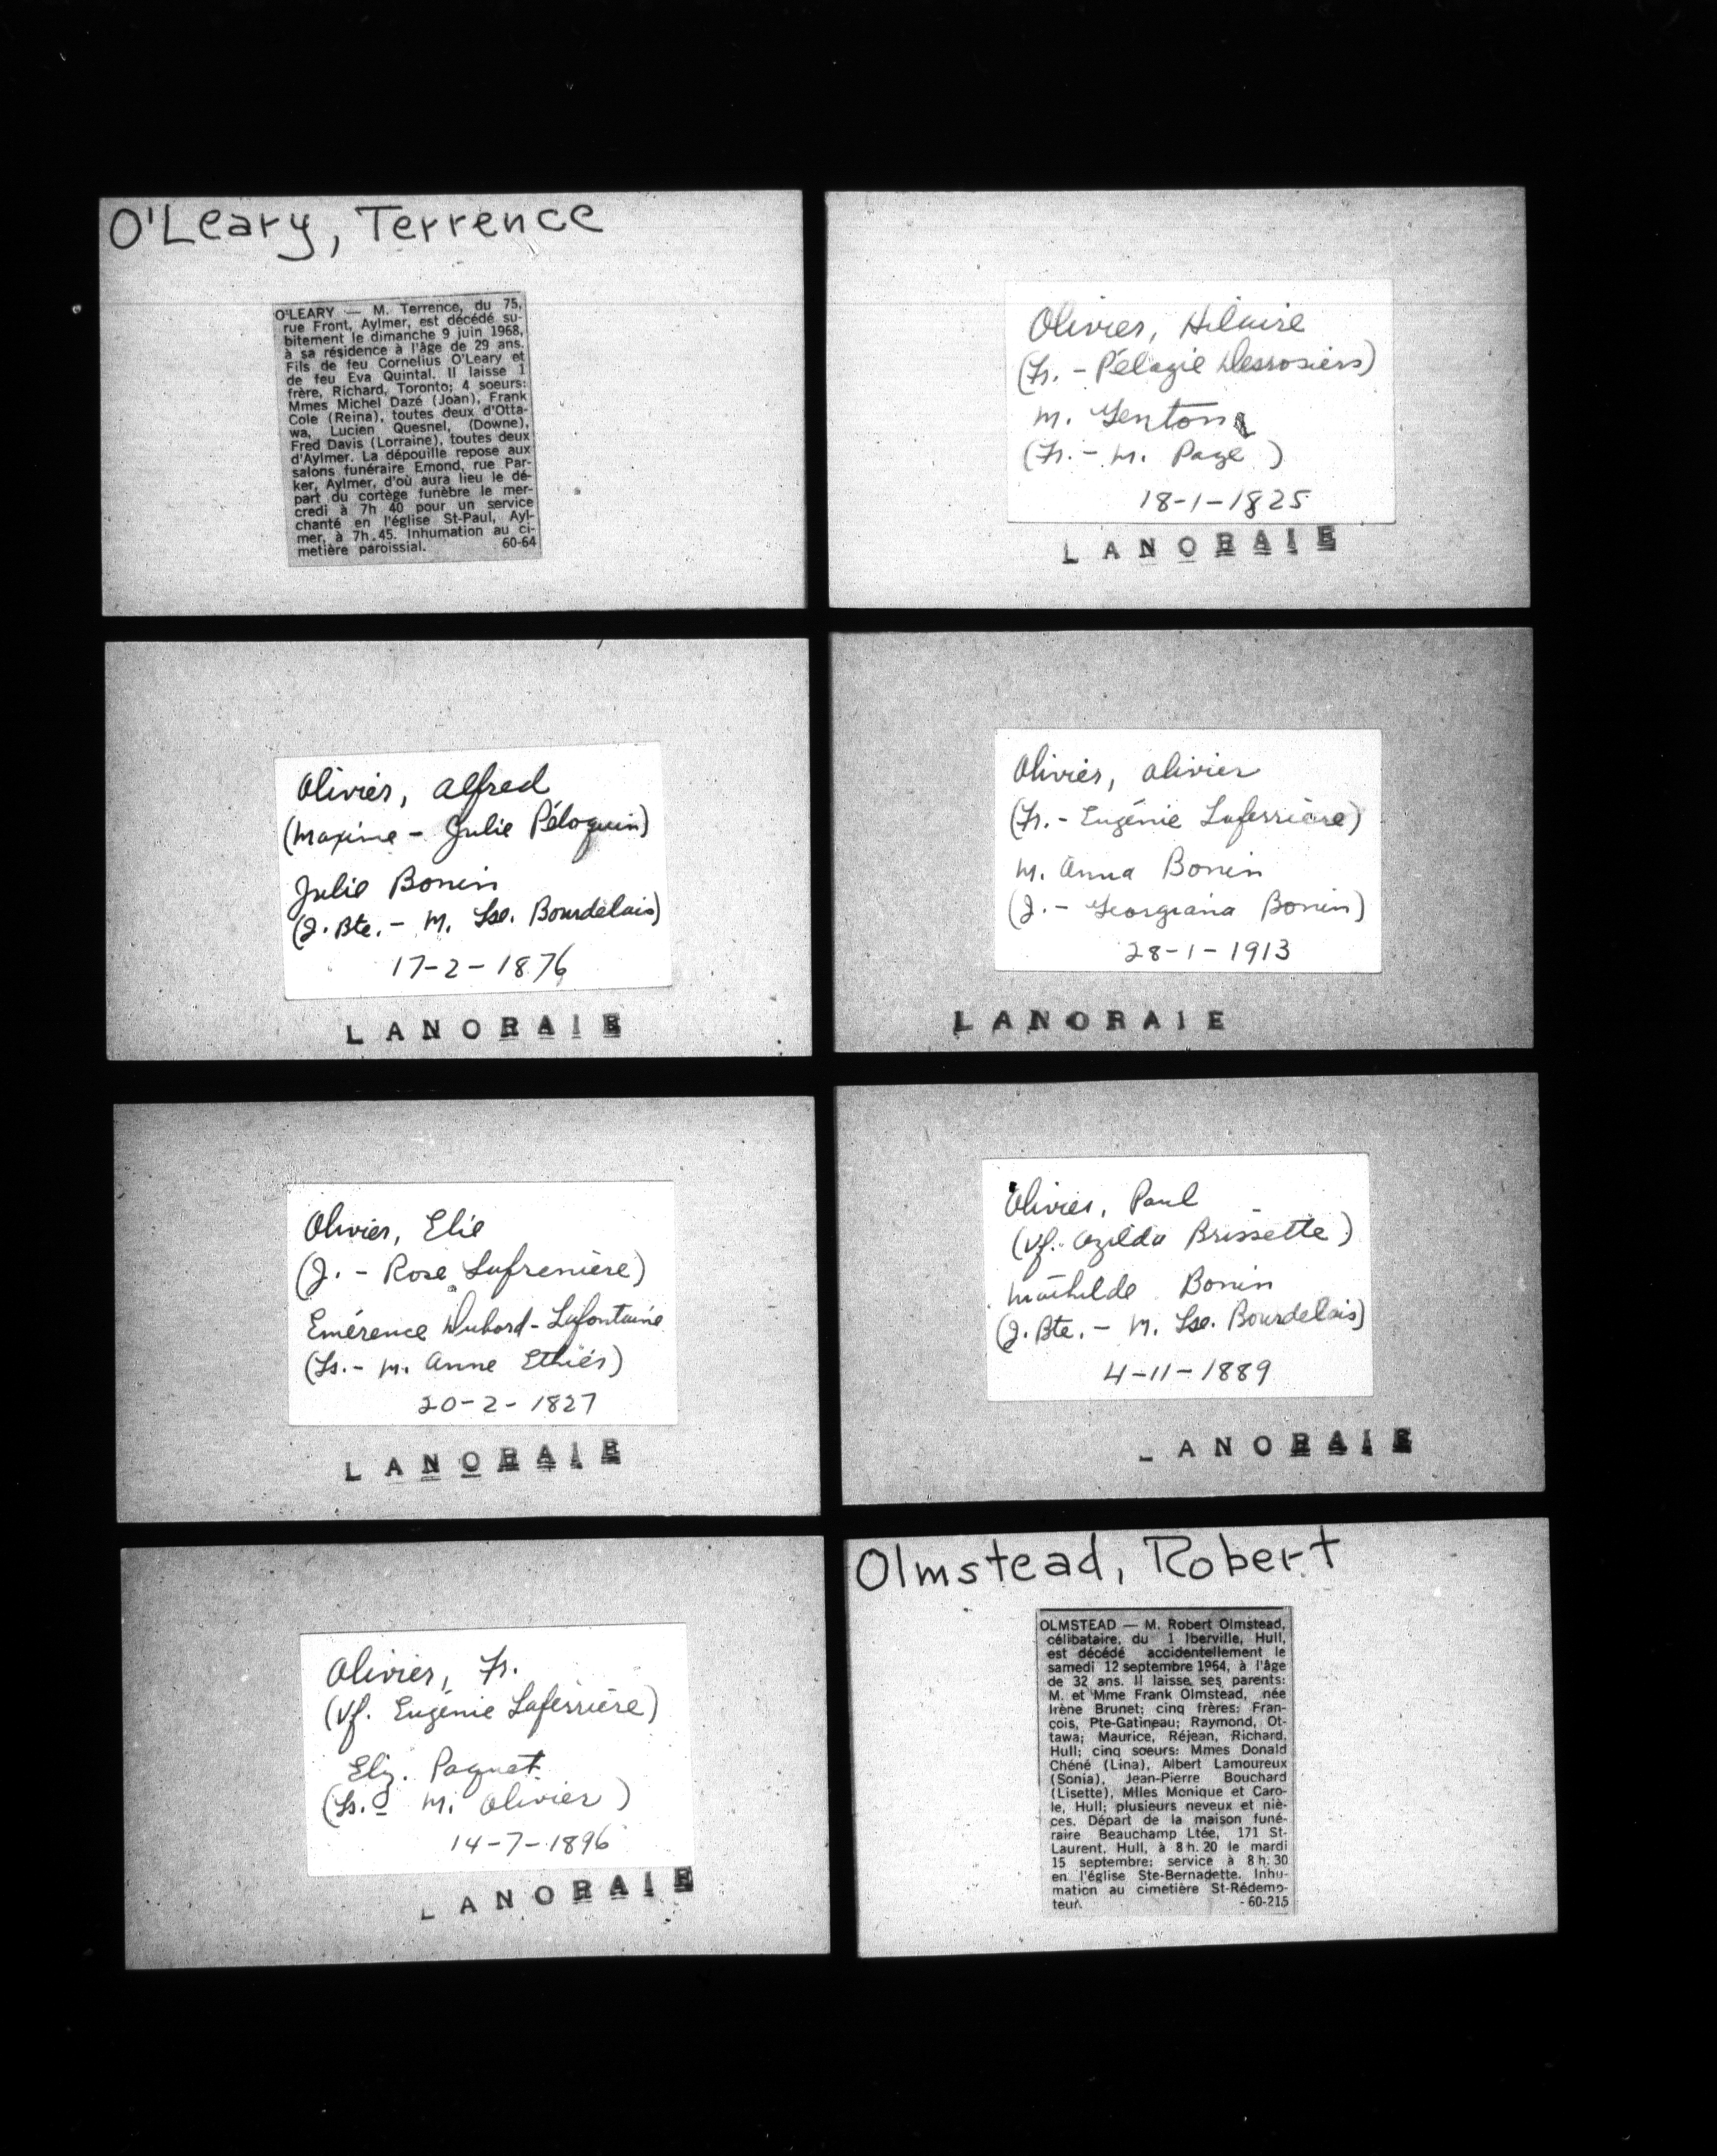 O'Leary, Terrence
O'LEARY — M. Terrence, du 75,
rue Front, Aylmer, est décédé su-
bitement le dimanche 9 juin 1968,
à sa résidence à l'âge de 29 ans.
Fils de feu Cornelius O'Leary et
de feu Eva Quintal. Il laisse 1
frère, Richard, Toronto; 4 soeurs:
Mmes Michel Dazé (Joan), Frank
Cole (Reina), toutes deux d'Otta-
wa, Lucien Quesnel, (Downe),
Fred Davis (Lorraine), toutes deux
d'Aylmer. La dépouille repose aux
salons funéraire Emond, rue Par-
ker, Aylmer, d'où aura lieu le dé-
part du cortège funèbre le mer-
credi à 7h 40 pour un service
chanté en l'église St-Paul, Ayl-
mer, à 7h.45. Inhumation au ci-
metière paroissial. 60-64
Olivier, Hilaire
(Fr. - Pélagie Desrosiers)
M. Genton
(Fr. - M. Page)
18-1-1825
LANORAIE
Olivier, Alfred
(Maxime - Julie Péloquin)
Julie Bonin
(J. Bte. - M. Lse. Bourdelais)
17-2-1876
LANORAIE
Olivier, Olivier
(Fr. - Eugénie Laferrière)
M. Anna Bonin
(J. - Georgiana Bonin)
28-1-1913
LANORAIE
Olivier, Elie
(J. - Rose Lafrenière)
Emérence Dubord-Lafontaine
(Ls. - M. Anne Ethier)
20-2-1827
LANORAIE
Olivier, Paul
(Vf. Ozilda Brissette)
Mathilde Bonin
(J. Bte. - M. Lse. Bourdelais)
4-11-1889
LANORAIE
Olivier, Fr.
(Vf. Eugénie Laferrière)
Eliz. Paquet
(Ls. - M. Olivier)
14-7-1896
LANORAIE
Olmstead, Robert
OLMSTEAD — M. Robert Olmstead,
célibataire, du 1 Iberville, Hull,
est décédé accidentellement le
samedi 12 septembre 1964, à l'âge
de 32 ans. Il laisse ses parents:
M. et Mme Frank Olmstead, née
Irène Brunet; cinq frères: Fran-
çois, Pte-Gatineau; Raymond, Ot-
tawa; Maurice, Réjean, Richard,
Hull; cinq soeurs: Mmes Donald
Chéné (Lina), Albert Lamoureux
(Sonia), Jean-Pierre Bouchard
(Lisette), Mlles Monique et Caro-
le, Hull; plusieurs neveux et niè-
ces. Départ de la maison funé-
raire Beauchamp Ltée, 171 St-
Laurent, Hull, à 8h.20 le mardi
15 septembre; service à 8h.30
en l'église Ste-Bernadette. Inhu-
mation au cimetière St-Rédemp-
teur. -60-215